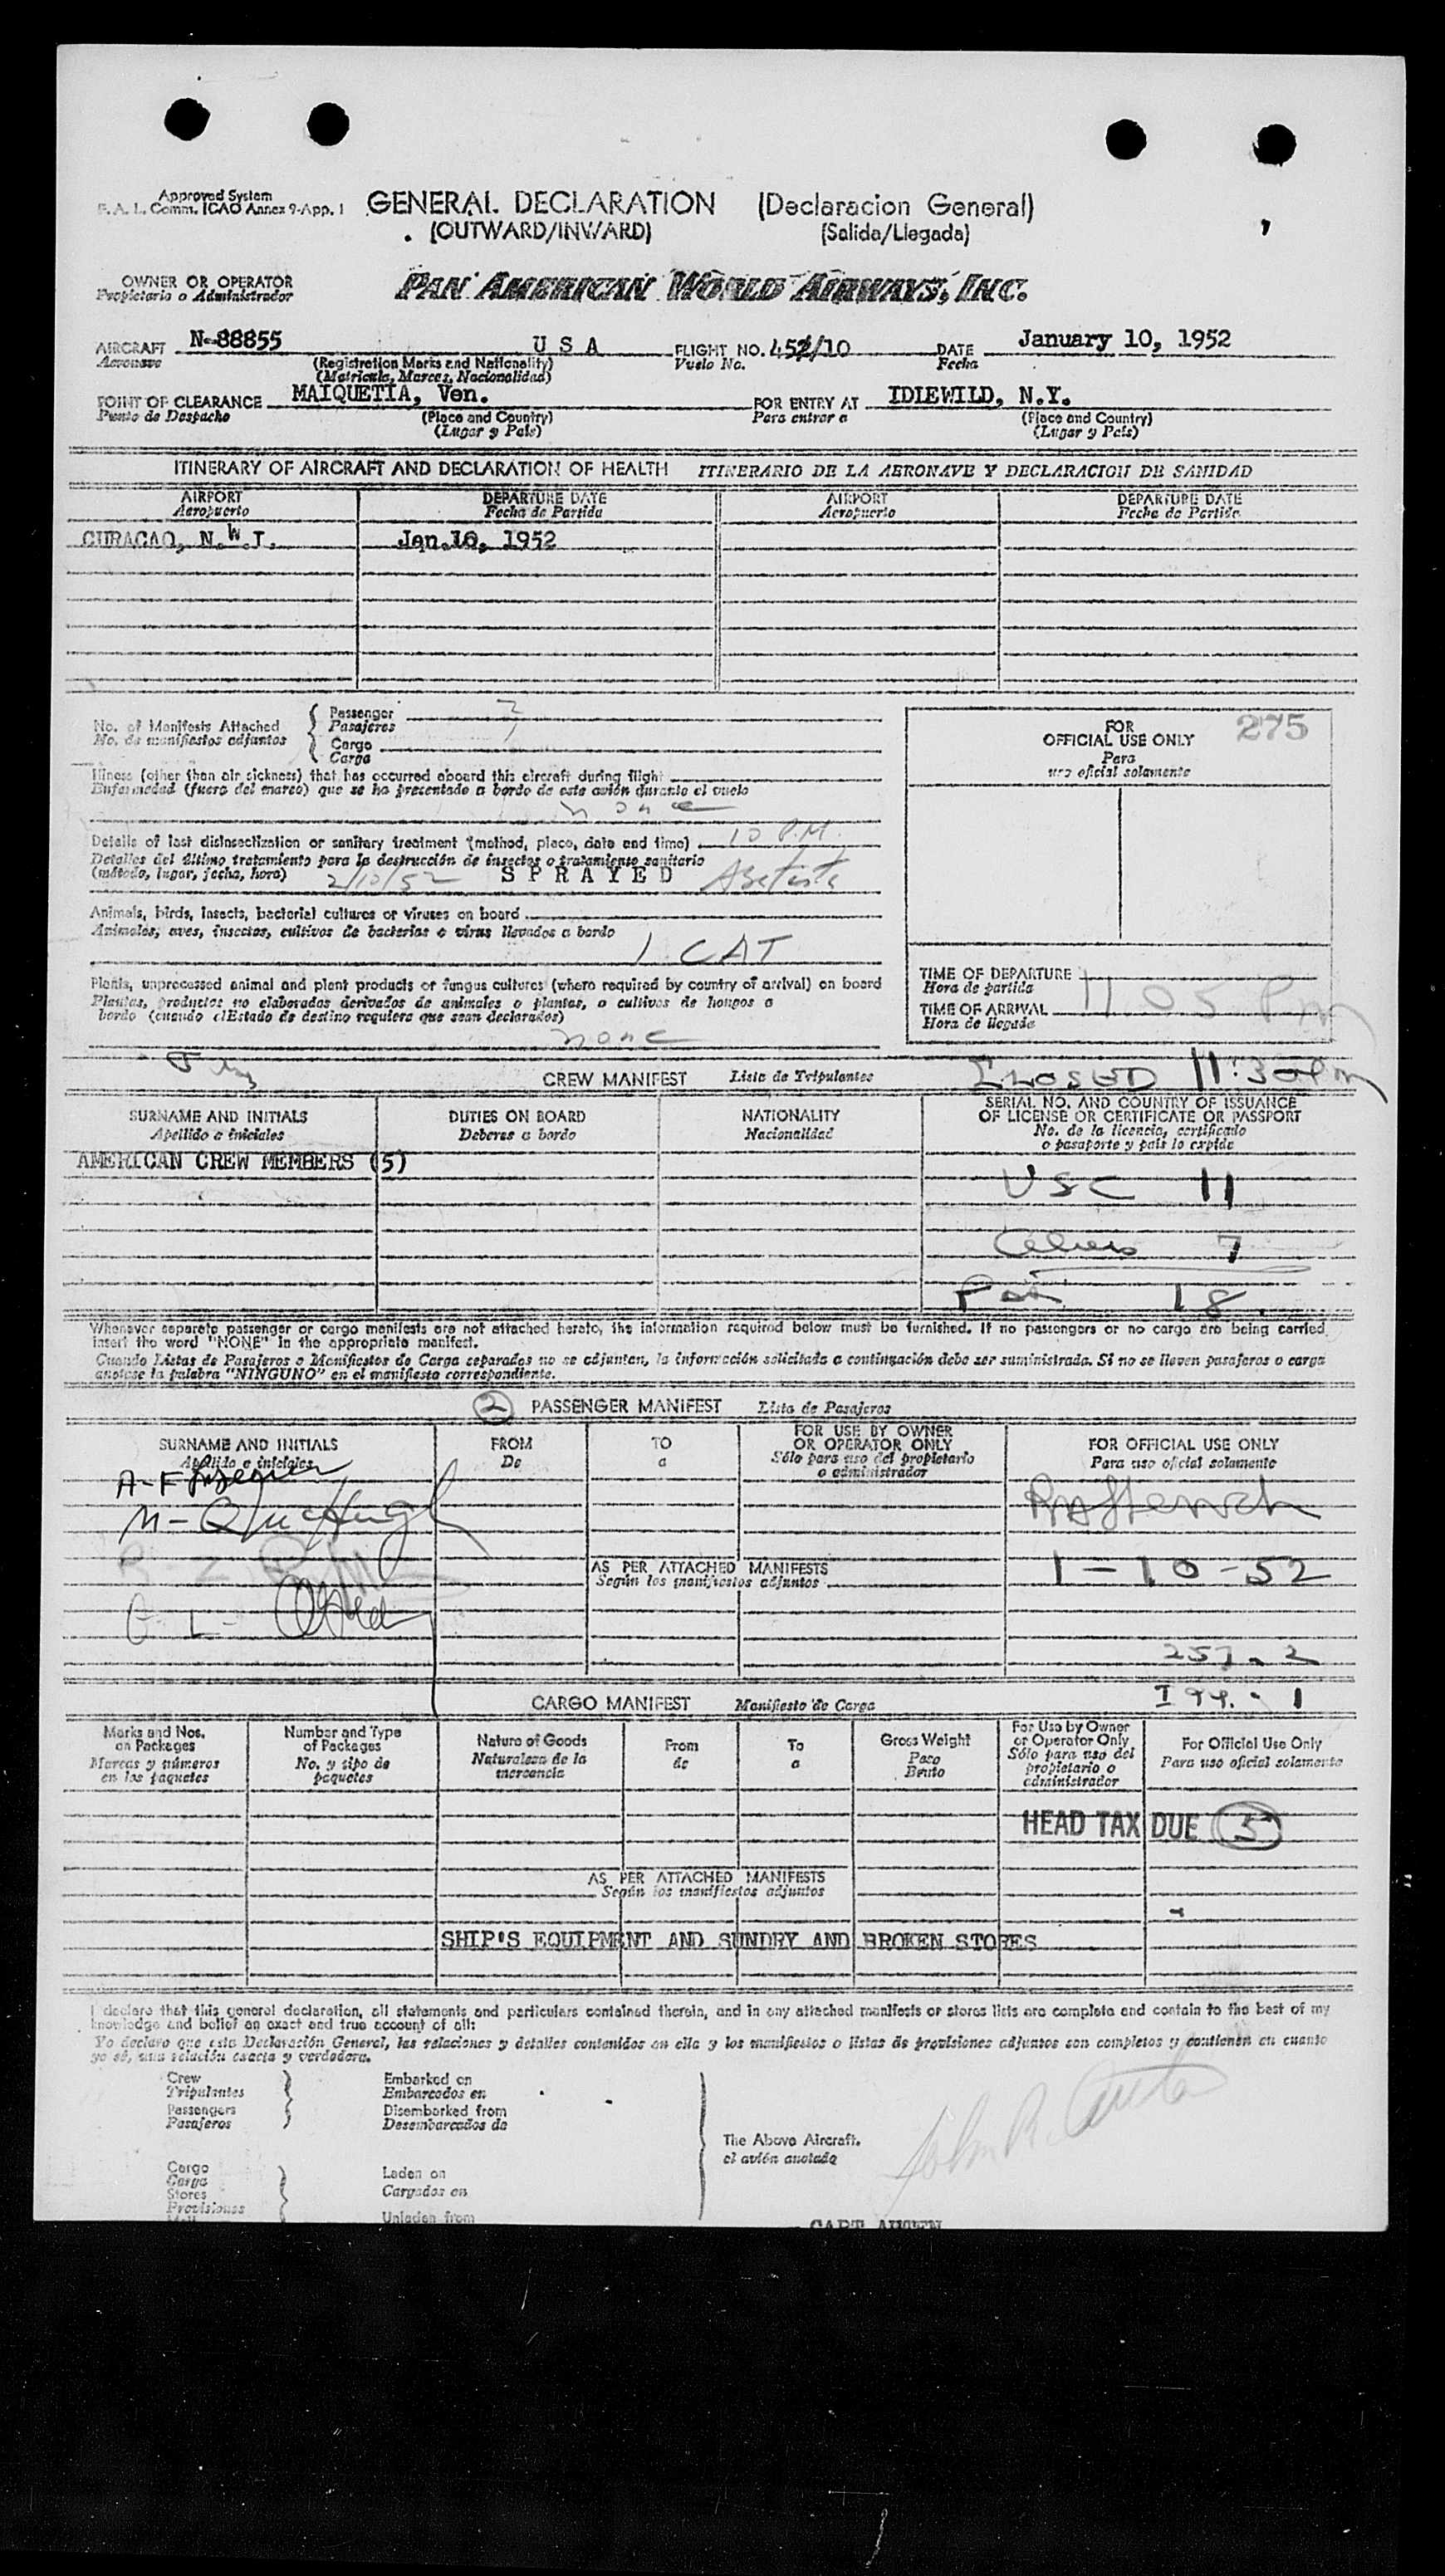 Approved System
F. A. L. Comm. ICAO Annex 9-App. 1
GENERAL DECLARATION (Declaracion General)
(OUTWARD/INWARD) (Salida/Llegada)
OWNER OR OPERATOR
Propietario o Administrador
PAN AMERICAN WORLD AIRWAYS, INC.
AIRCRAFT N-88855 U S A FLIGHT NO. 452/10 DATE January 10, 1952
Aeronave (Registration Marks and Nationality) Vuelo No. Fecha
(Matricula, Marcas, Nacionalidad)
POINT OF CLEARANCE MAIQUETIA, Ven. FOR ENTRY AT IDIEWILD, N.Y.
Punto de Despacho (Place and Country) Para entrar a (Place and Country)
(Lugar y País) (Lugar y País)
ITINERARY OF AIRCRAFT AND DECLARATION OF HEALTH ITINERARIO DE LA AERONAVE Y DECLARACION DE SANIDAD
AIRPORT DEPARTURE DATE AIRPORT DEPARTURE DATE
Aeropuerto Fecha de Partida Aeropuerto Fecha de Partida
CURACAO, N.W.I. Jan.10, 1952
No. of Manifests Attached
No. de manifiestos adjuntos
Passenger 2
Pasajeros
Cargo
Carga
FOR 275
OFFICIAL USE ONLY
Para
uso oficial solamente
Illness (other than air sickness) that has occurred aboard this aircraft during flight
Enfermedad (fuera del mareo) que se ha presentado a bordo de este avión durante el vuelo
none
Details of last disinsectization or sanitary treatment (method, place, date and time) 10 P.M.
Detalles del último tratamiento para la destrucción de insectos o tratamiento sanitario
(método, lugar, fecha, hora) 2/10/52 SPRAYED
Animals, birds, insects, bacterial cultures or viruses on board
Animales, aves, insectos, cultivos de bacterias o virus llevados a bordo
1 CAT
Plants, unprocessed animal and plant products or fungus cultures (where required by country of arrival) on board
Plantas, productos no elaborados derivados de animales o plantas, o cultivos de hongos a
bordo (cuando el Estado de destino requiera que sean declarados)
none
TIME OF DEPARTURE
Hora de partida
11 05 Pm
TIME OF ARRIVAL
Hora de llegada
CLOSED 11:30 Pm
CREW MANIFEST Lista de Tripulantes
SURNAME AND INITIALS DUTIES ON BOARD NATIONALITY SERIAL NO. AND COUNTRY OF ISSUANCE
OF LICENSE OR CERTIFICATE OR PASSPORT
Apellido e iniciales Deberes a bordo Nacionalidad No. de la licencia, certificado
o pasaporte y país lo expide
AMERICAN CREW MEMBERS (5)
USC 11
Aliens 7
18
Whenever separate passenger or cargo manifests are not attached hereto, the information required below must be furnished. If no passengers or no cargo are being carried,
insert the word "NONE" in the appropriate manifest.
Cuando Listas de Pasajeros o Manifiestos de Carga separados no se adjuntan, la información solicitada a continuación debe ser suministrada. Si no se lleven pasajeros o carga
anotese la palabra "NINGUNO" en el manifiesto correspondiente.
2 PASSENGER MANIFEST Lista de Pasajeros
SURNAME AND INITIALS FROM TO FOR USE BY OWNER
OR OPERATOR ONLY FOR OFFICIAL USE ONLY
Apellido e iniciales De a Sólo para uso del propietario
o administrador Para uso oficial solamente
AS PER ATTACHED MANIFESTS
Según los manifiestos adjuntos
1-10-52
257 - 2
I 94. - 1
CARGO MANIFEST Manifiesto de Carga
Marks and Nos.
on Packages
Marcas y números
en los paquetes
Number and Type
of Packages
No. y tipo de
paquetes
Nature of Goods
Naturaleza de la
mercancia
From
de
To
a
Gross Weight
Peso
Bruto
For Use by Owner
or Operator Only
Sólo para uso del
propietario o
administrador
For Official Use Only
Para uso oficial solamente
HEAD TAX DUE 5
AS PER ATTACHED MANIFESTS
Según los manifiestos adjuntos
SHIP'S EQUIPMENT AND SUNDRY AND BROKEN STORES
I declare that this general declaration, all statements and particulars contained therein, and in any attached manifests or stores lists are complete and contain to the best of my
knowledge and belief an exact and true account of all:
Yo declaro que esta Declaración General, las relaciones y detalles contenidos en ella y los manifiestos o listas de provisiones adjuntos son completos y contienen en cuanto
yo sé, una relación exacta y verdadera.
Crew
Tripulantes
Passengers
Pasajeros
Embarked on
Embarcados en
Disembarked from
Desembarcados de
The Above Aircraft.
el avión anotado
John R. Auten
Cargo
Carga
Stores
Provisiones
Mail
Laden on
Cargados en
Unladen from
CAPT AUTEN